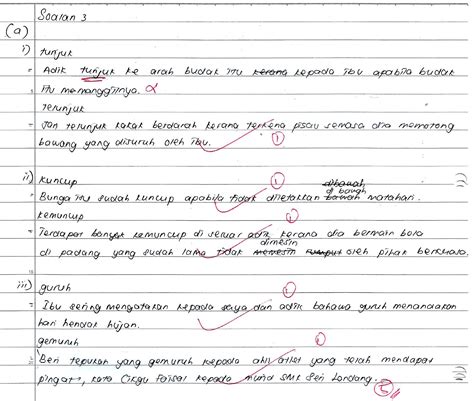 Soalan 3
(a)
i) tunjuk
- Adik tunjuk ke arah budak itu kerana kepada ibu apabila budak
itu memanggilnya.
Terunjuk
- Jari terunjuk kakak berdarah kerana terkena pisau semasa dia memotong
bawang yang disuruh oleh ibu. 1
ii) kuncup 1
dibawah
di bawah
- Bunga itu sudah kuncup apabila tidak diletakkan bawah matahari.
kemuncup 1
- Terdapat banyak kemuncup di seluar adik kerana dia bermain bola
dimesin
di padang yang sudah lama tidak memesin rumput oleh pihak berkuasa.
iii) guruh 1
- Ibu sering mengatakan kepada saya dan adik bahawa guruh menandakan
hari hendak hujan.
gemuruh 1
- "Beri tepukan yang gemuruh kepada ahli atlet yang telah mendapat
pingat", kata Cikgu Faisal kepada murid SMK Seri Londang. 5